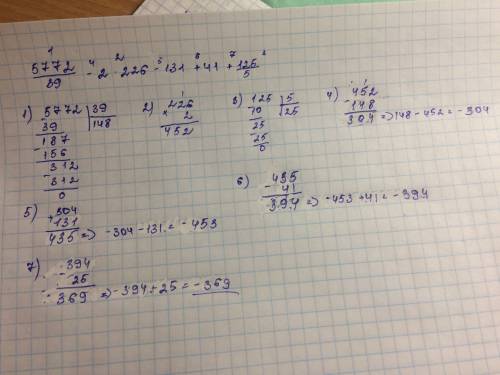 1 4 2 5 6 7 3
5772/39 - 2 · 226 - 131 + 41 + 125/5
1) 5772 | 39 2) 226 3) 125 | 5 4) - 452
39 148 × 2 10 25 148
- 187 452 25 304 => 148 - 452 = - 304
156 - 25
- 312 0
- 312
0
5) + 304 6) - 435
131 41
435 => - 304 - 131 = - 453 394 => - 453 + 41 = - 394
7) - 394
25
369 => - 394 + 25 = - 369